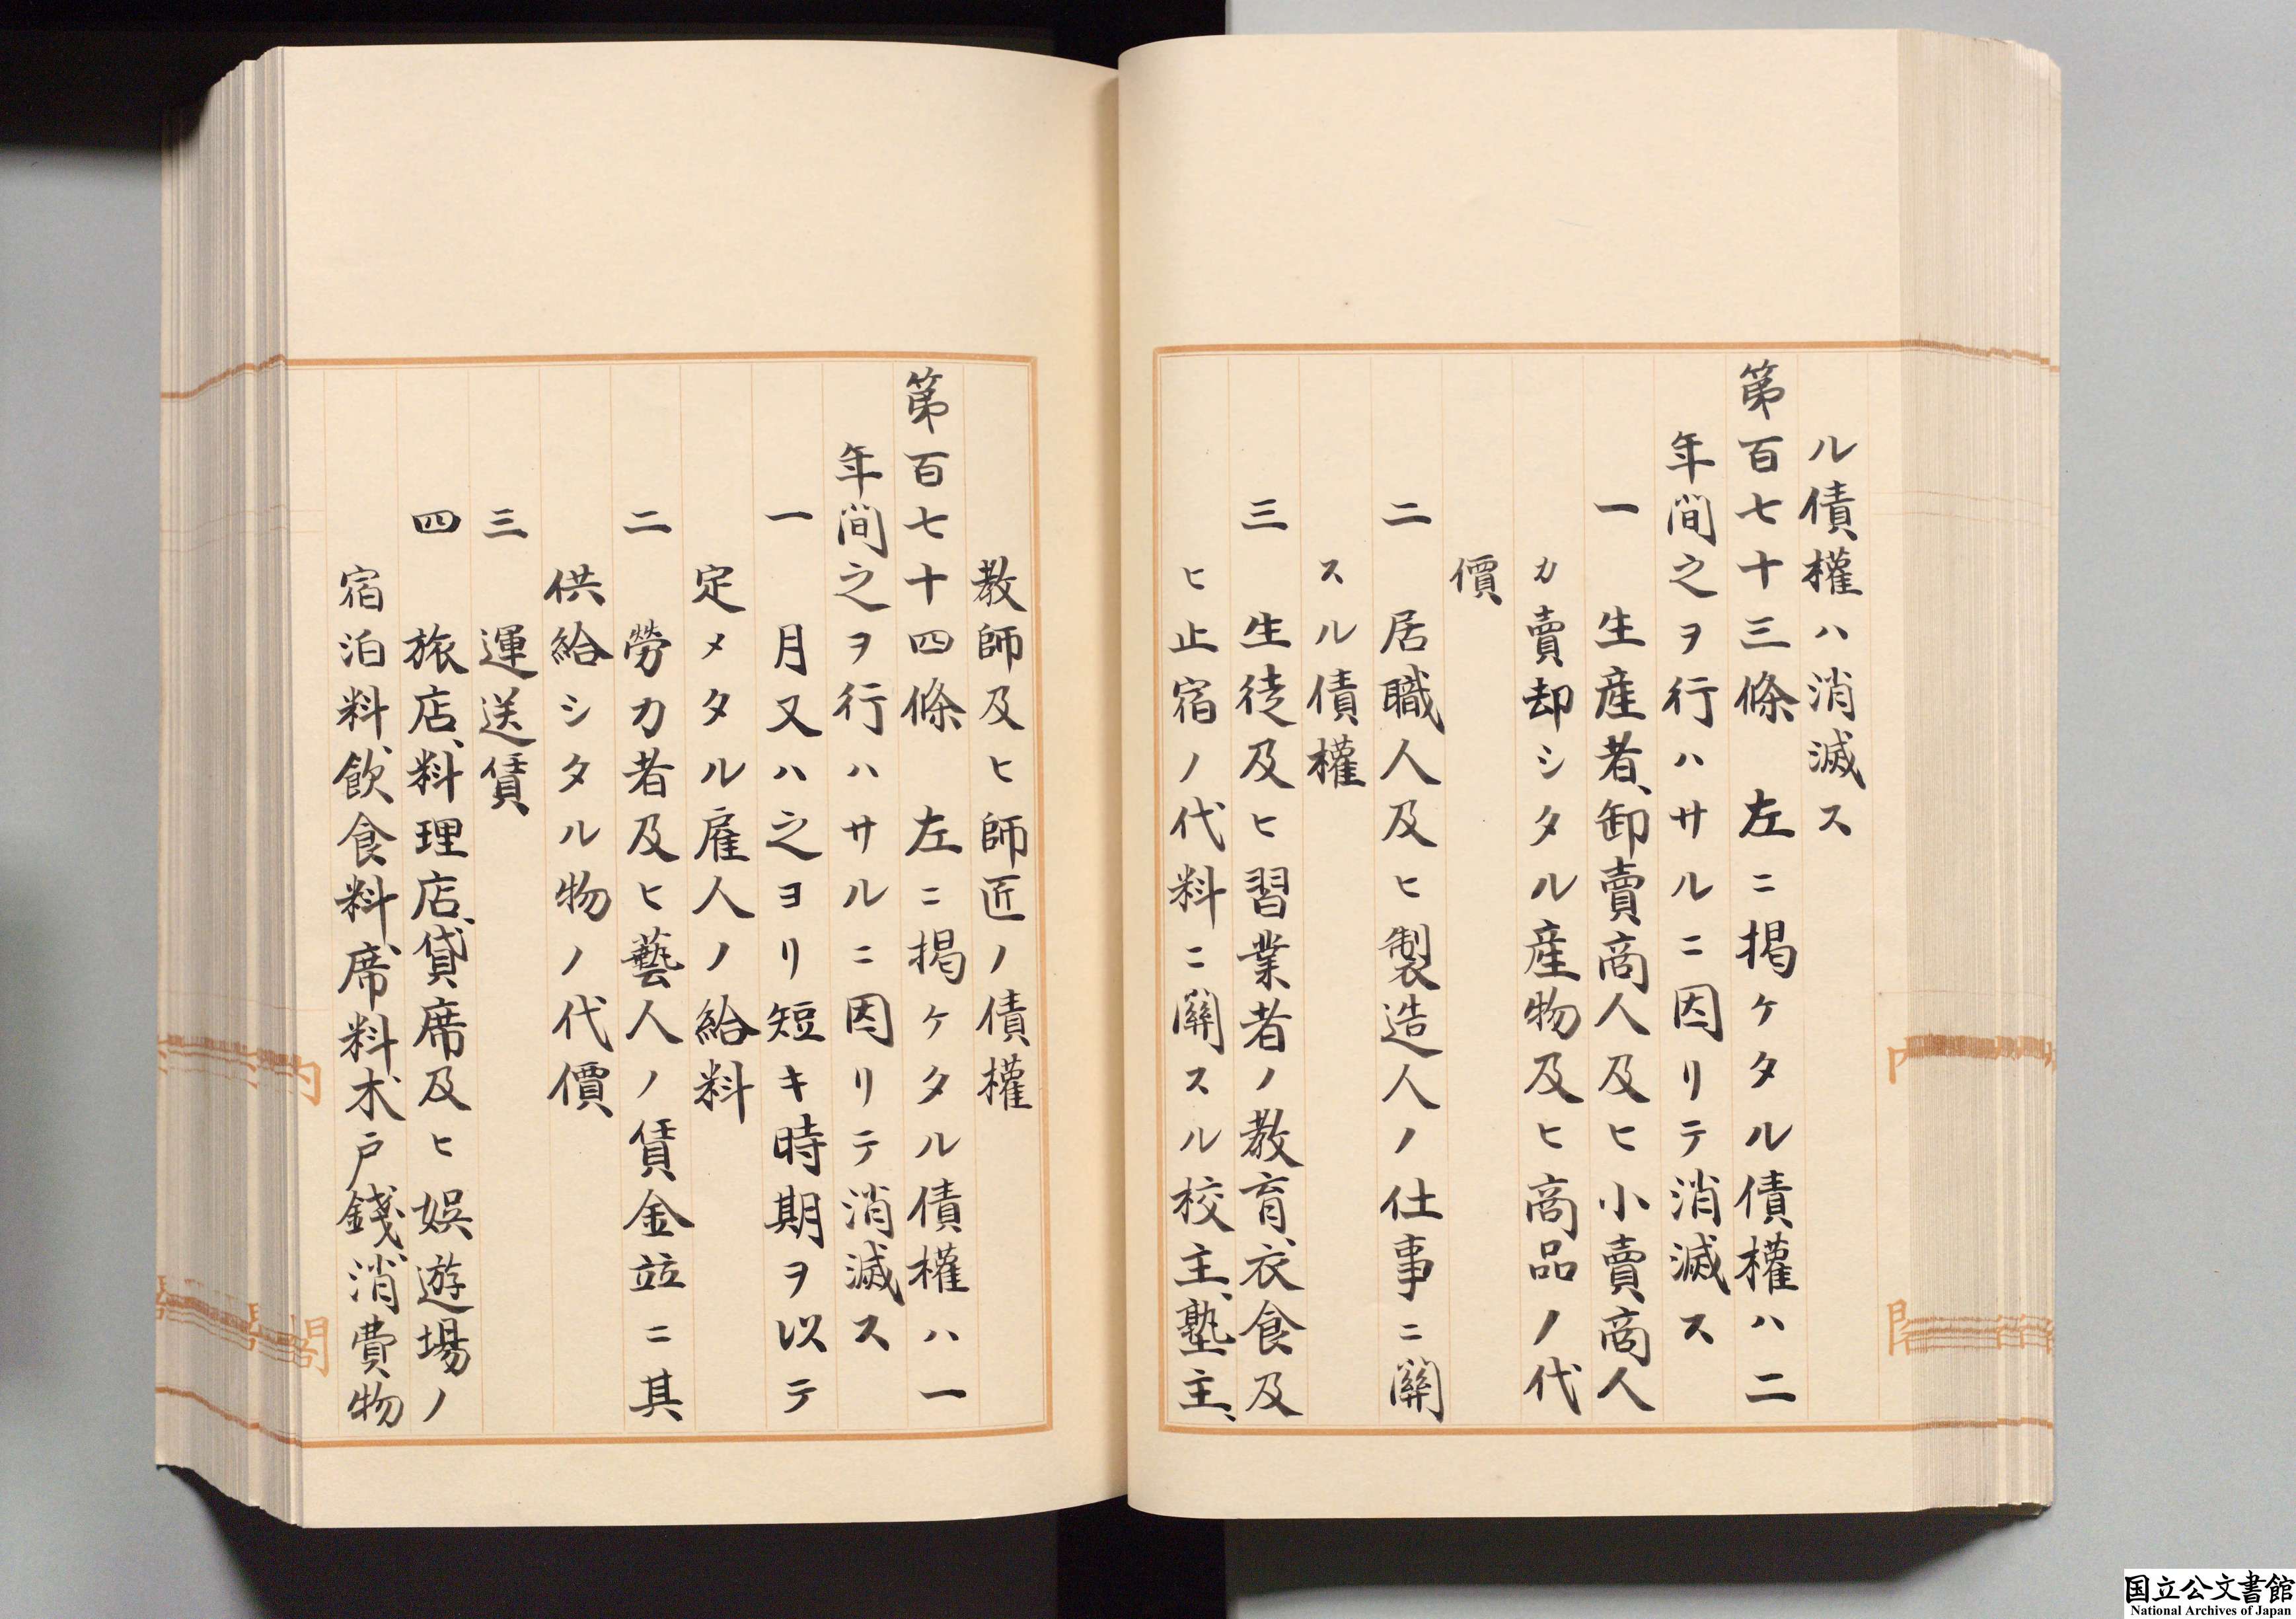 ル債權ハ消滅ス
第百七十三條　左ニ掲ケタル債權ハ二
年間之ヲ行ハサルニ因リテ消滅ス
一　生産者、卸賣商人及ヒ小賣商人
カ賣却シタル産物及ヒ商品ノ代
價
二　居職人及ヒ製造人ノ仕事ニ關
スル債權
三　生徒及ヒ習業者ノ教育、衣食及
ヒ止宿ノ代料ニ關スル校主、塾主、
教師及ヒ師匠ノ債權
第百七十四條　左ニ掲ケタル債權ハ一
年間之ヲ行ハサルニ因リテ消滅ス
一　月又ハ之ヨリ短キ時期ヲ以テ
定メタル雇人ノ給料
二　勞力者及ヒ藝人ノ賃金竝ニ其
供給シタル物ノ代價
三　運送賃
四　旅店、料理店、貸席及ヒ娯遊場ノ
宿泊料、飲食料、席料、木戸錢、消費物
国立公文書館
National Archives of Japan